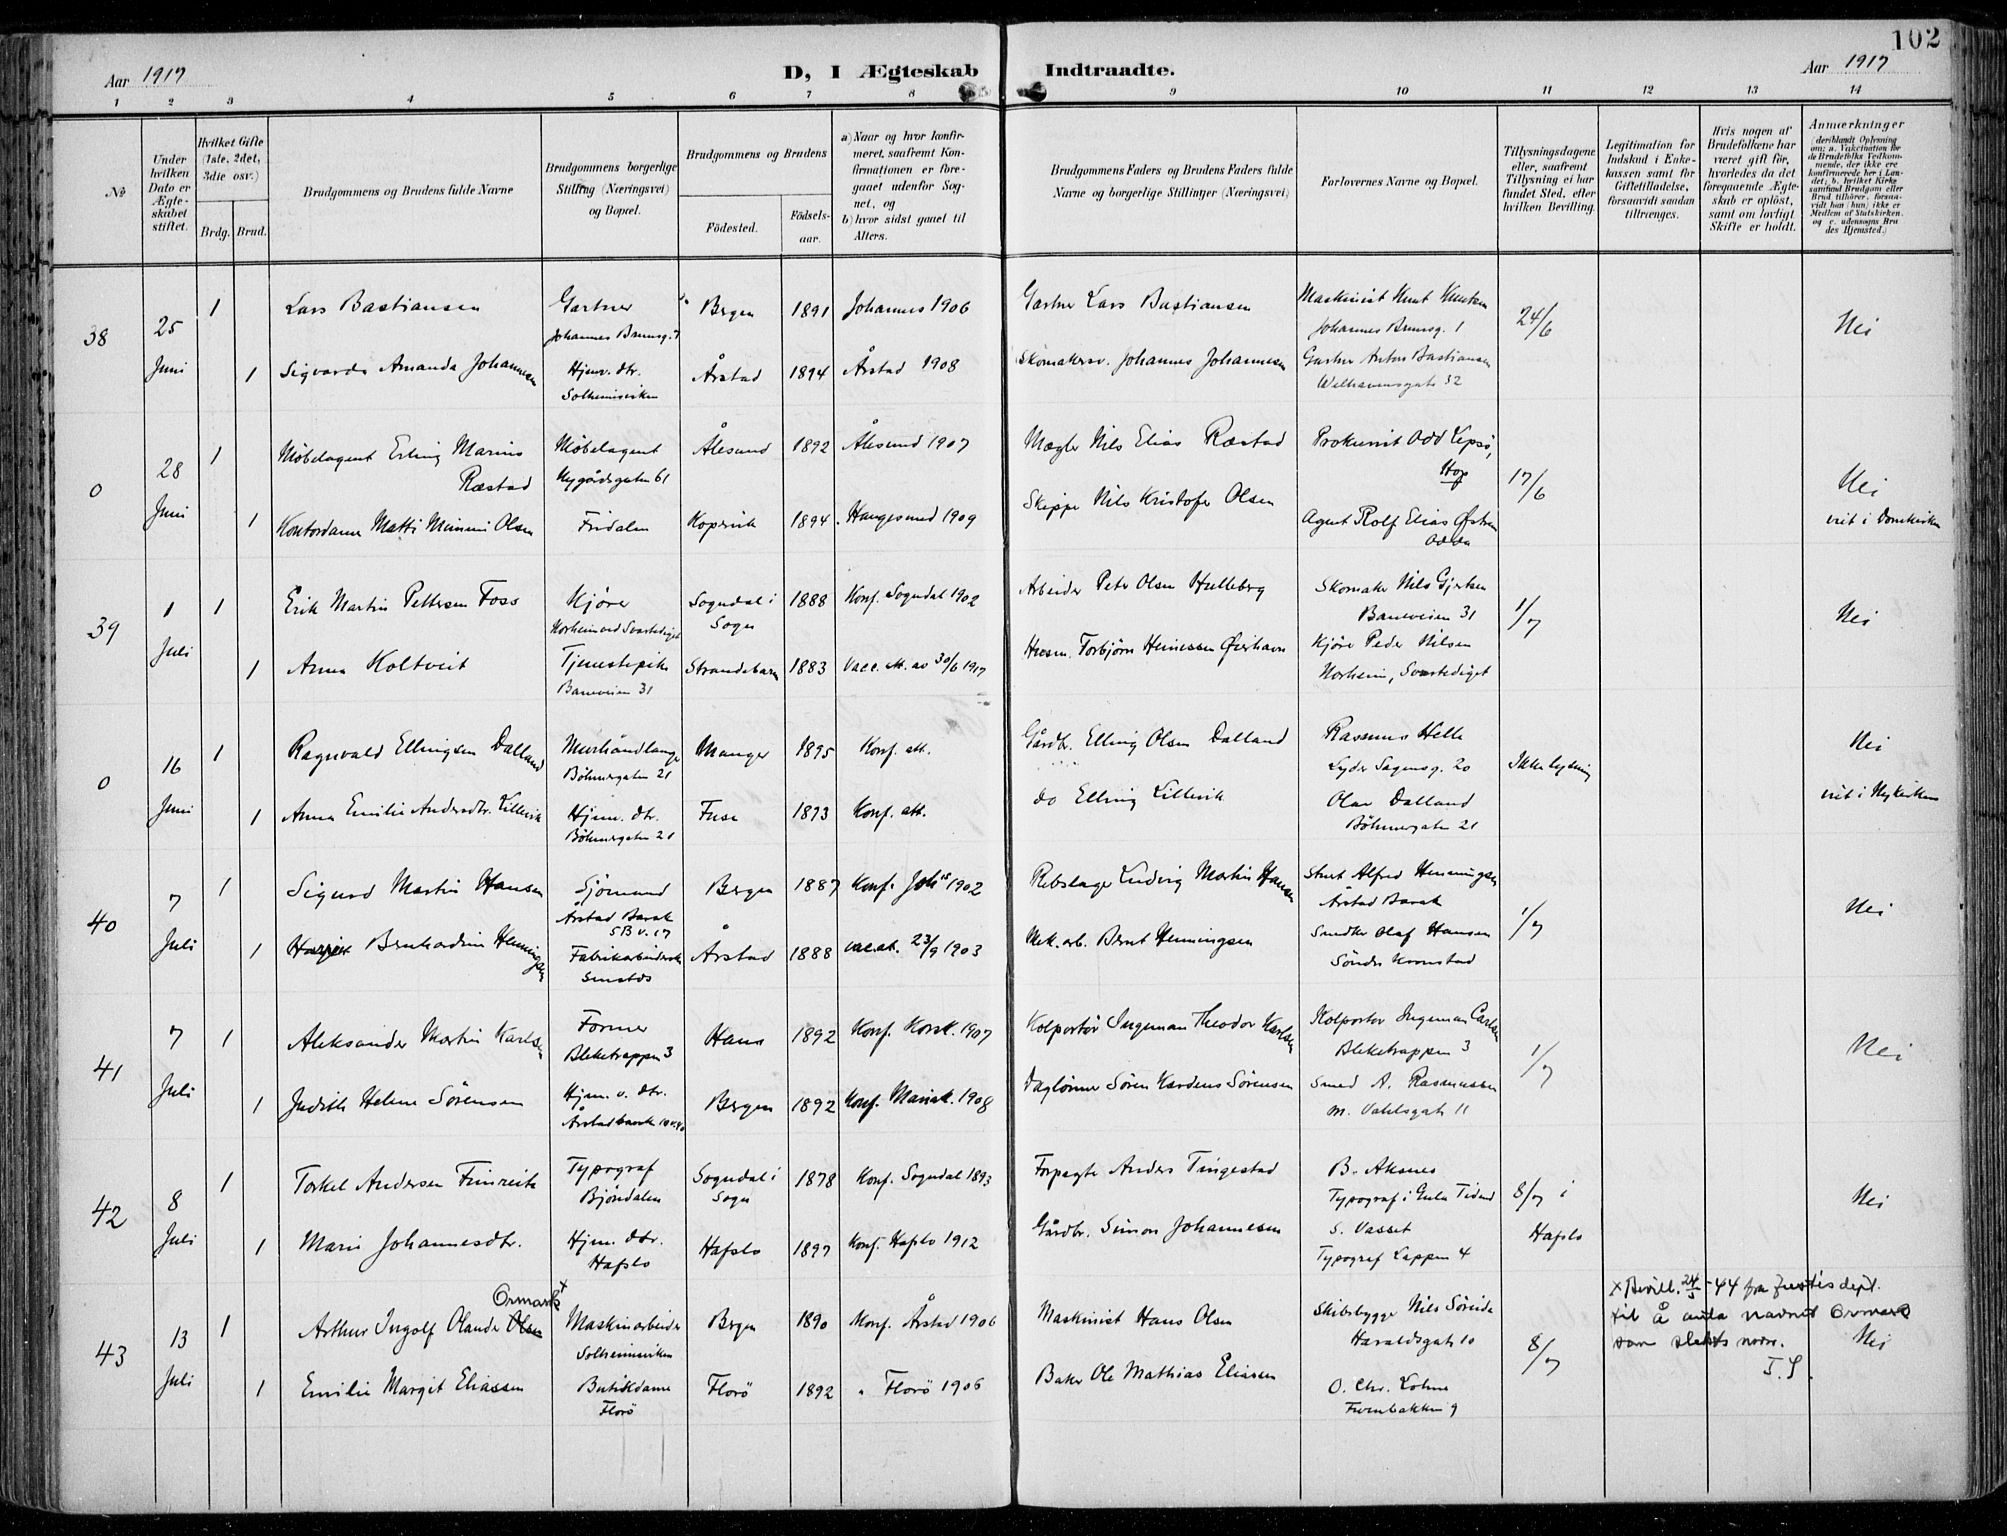 102
Aar 1917
D, I Ægteskab Indtraadte.
Aar 1917
1 2 3 4 5 6 7 8 9 10 11 12 13 14
No
Under hvilken Dato er Ægteskabet stiftet.
Hvilket Gifte (1ste, 2det, 3die osv.)
Brdg. Brud.
Brudgommens og Brudens fulde Navne
Brudgommens borgerlige Stilling (Næringsvei) og Bopæl.
Brudgommens og Brudens
Fødested.
Fødselsaar.
a) Naar og hvor konfirmeret, saafremt Konfirmationen er foregaaet udenfor Sognet, og
b) hvor sidst gaaet til Alters.
Brudgommens Faders og Brudens Faders fulde Navne og borgerlige Stillinger (Næringsvei)
Forlovernes Navne og Bopæl.
Tillysningsdagene eller, saafremt Tillysning ei har fundet Sted, efter hvilken Bevilling.
Legitimation for Indskud i Enkekassen samt for Giftetilladelse, forsaavidt saadan tiltrænges.
Hvis nogen af Brudefolkene har været gift før, hvorledes da det foregaaende Ægteskab er opløst, samt om lovligt Skifte er holdt.
Anmærkninger (deriblandt Oplysning om: a. Vaccination for de Brudefolks Vedkommende, der ikke ere konfirmerede her i Landet; b. hvilket Kirkesamfund Brudgom eller Brud tilhører, forsaavidt han (hun) ikke er Medlem af Statskirken, og c. udensogns Brudes Hjemsted.)
38
25 Juni
1
Lars Bastiansen
Gartner
Johannes Brunsg. 7
Bergen 1891 Johannes 1906
Gartner Lars Bastiansen
Maskinist Knut Knutsen
Johannes Brunsg. 1
24/6
Nei
1
Sigvarda Amanda Johannesen
Hjemv. dtr.
Solheimsviken
Årstad 1894 Årstad 1908
Skomakersv. Johannes Johannesen
Gartner Anton Bastiansen
Welhavensgate 32
0
28 Juni
1
Møbelagent Erling Marius Ræstad
Møbelagent
Nygårdsgaten 61
Ålesund 1892 Ålesund 1907
Mægler Nils Elias Ræstad
Prokurist Odd Lepsö,
Hop
17/6
Nei
viet i Domkirken
1
Kontordame Matti Mimmi Olsen
Fridalen
Kopervik 1894 Haugesund 1909
Skipper Nils Kristofer Olsen
Agent Rolf Elias
Odda
39
1 Juli
1
Erik Martin Pettersen Foss
Kjörer
Norheim ved Svartediget
Sogndal i Sogn 1888 Konf. Sogndal 1902
Arbeider Peter Olsen Hulleberg
Skomaker Nils Gjertsen
Baneveien 31
1/7
Nei
1
Anna Koltveit
Tjenestepike
Baneveien 31
Strandebarm 1883 Vacc. At. av 30/6 1917
Husm. Torbjörn
Kjörer Peder Nilsen
Norheim, Svartediget
0
16 Juni
1
Ragnvald Ellingsen Dalland
Murhåndlanger
Böhmergaten 21
Manger 1895 Konf. att.
Gårdbr. Elling Olsen Dalland
Rasmus Helle
Lyder Sagensg. 20
Ikke lysning
Nei
viet i Nykirken
1
Anna Emilie Andersdtr. Lillevik
Hjem. dtr.
Böhmergaten 21
Fusa 1893 Konf. att.
do Elling Lillevik
Olav Dalland
Böhmergaten 21
40
7 Juli
1
Sigurd Martin Hansen
Sjömand
Årstad Barak
5 B v. 17
Bergen 1887 Konf. Johs 1902
Rebslager Ludvig Martin Hansen
Alfred Henningsen
Årstad Barak
1/7
Nei
1
Bernhardine Henningsen
Fabrikarbeiderske
smstds
Årstad 1888 vac.at. 23/9 1903
Mek. arb. Bernt Henningsen
Snedker Olaf Hansen
Söndre Kronstad
41
7 Juli
1
Aleksander Martin Karlsen
Former
Bleketrappen 3
Haus 1892 Konf. Korsk. 1907
Kolportör Ingeman Theodor Karlsen
Kolportör Ingeman Carlsen
Bleketrappen 3
1/7
Nei
1
Judith Helene Sörensen
Hjem. v. dtr.
Årstad barak
Bergen 1892 Konf. Mariak. 1908
Daglönner Sören Sörensen
Smed A. Rasmussen
M. Vahlsgate 11
42
8 Juli
1
Torkel Andersen Fimreite
Typograf
Bjöndalen
Sogndal i Sogn 1878 Konf. Sogndal 1893
Forpagter Anders Tingestad
B. Aksnes
Typograf i Gula Tidend
8/7 i
Hafslo
Nei
1
Marie Johannesdtr.
Hjem. dtr.
Hafslo
Hafslo 1897 Konf. Hafslo 1912
Gårdbr. Simon Johannesen
S. Vasset
Typograf Lappen 4
43
13 Juli
1
Ormark x
Arthur Ingolf Olander Olsen
Maskinarbeider
Solheimsviken
Bergen 1890 Konf. Årstad 1906
Maskinist Hans Olsen
Skibsbygger Nils Söreide
Haraldsgate 10
8/7
x Bevill. 24/3-44 fra Justisdept.
til å anta navnet Ormark
som slekts navn. Nei
T. S.
1
Emilie Margit Eliassen
Butikdame
Florö
Florö 1892 " Florö 1906
Baker Ole Mathias Eliasen
O. Chr. Lohne
9